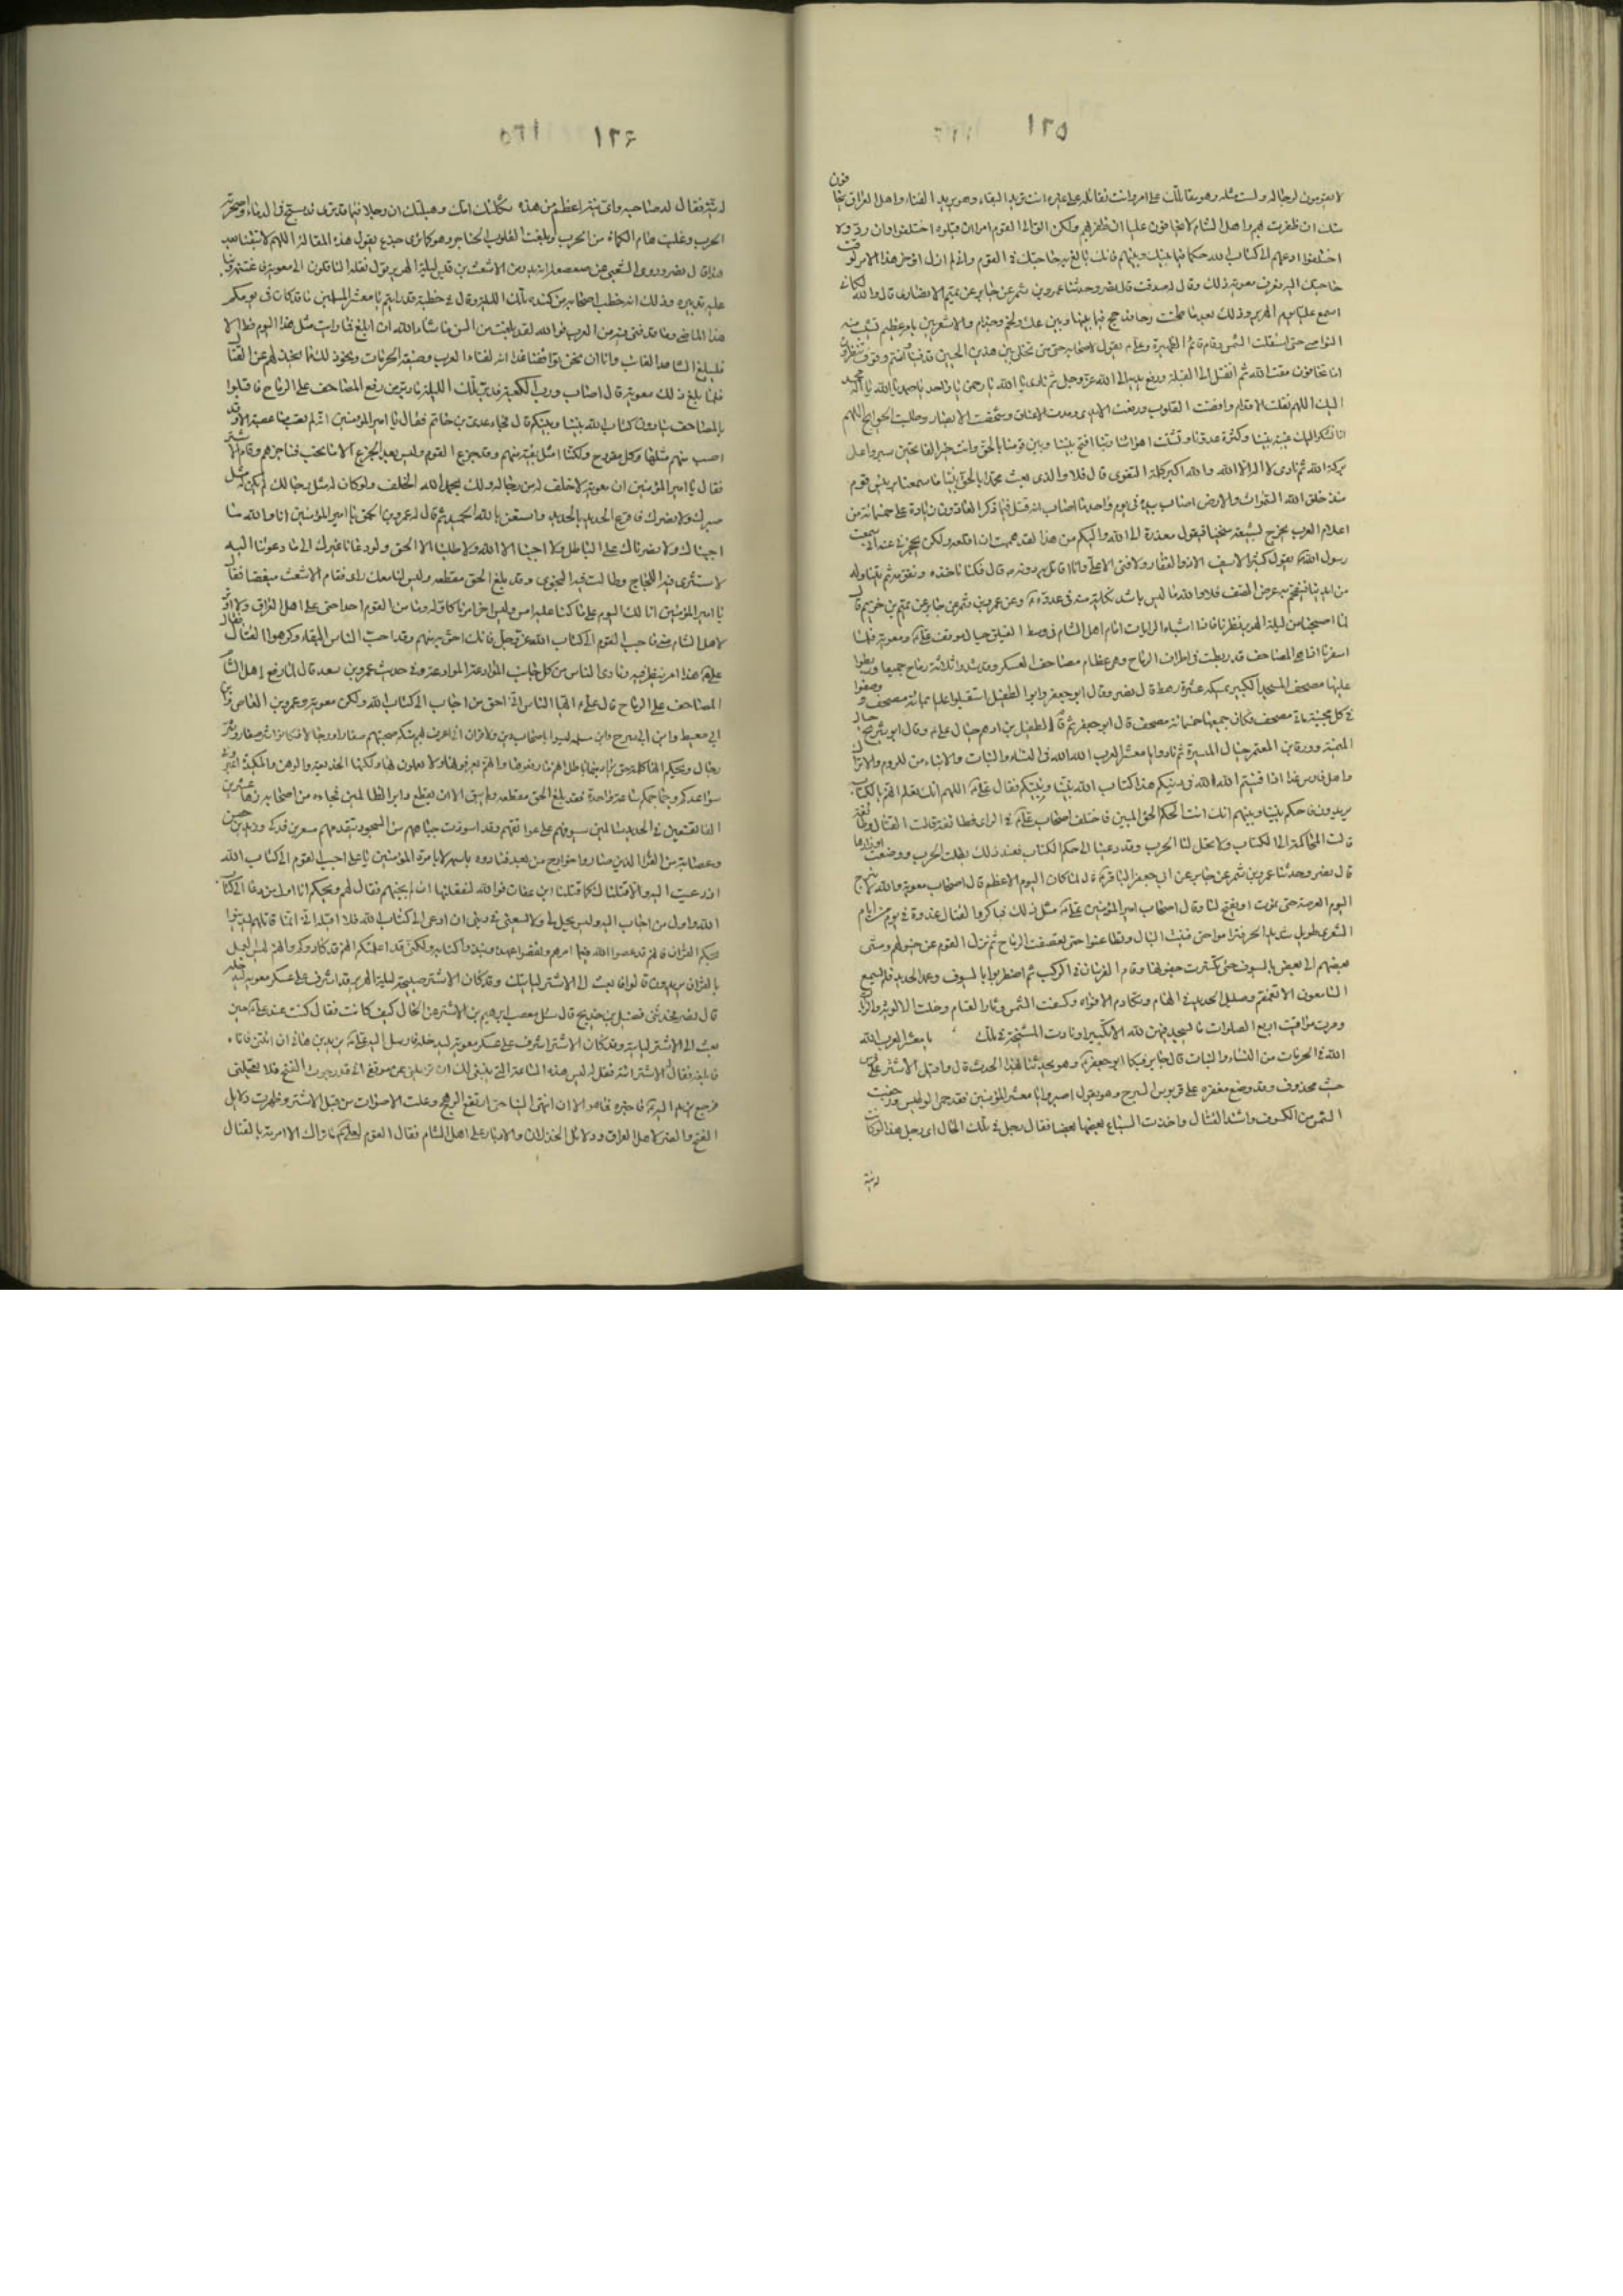 ١٢٥
لا يقومون لرجاله ولست مثله وهو يقاتلك على امر وانت تقاتله على غيره انت تريد البقاء وهو يريد الفناء واهل العراق يخافون
منك ان ظفرت بهم واهل الشام لا يخافون عليا ان ظفر بهم ولكن الق الى القوم امرا ان قبلوه اختلفوا وان ردوه
اختلفوا ادعهم الى كتاب الله حكما فيما بينك وبينهم فانك بالغ به حاجتك في القوم واني لم ازل اؤخر هذا الامر لوقت
حاجتك اليه فعرف معوية ذلك وقال له صدقت قال نصر وحدثنا عمرو بن شمر عن جابر عن تميم الانصاري قال والله لكاني
اسمع عليا يوم الهرير وذلك بعد ما طحنت رحا مذحج فيما بينها وبين عك ولخم وجذام والاشعريين بامر عظيم تشيب منه
النواصي حتى استقلت الشمس وقام قائم الظهيرة وعلي يقول لاصحابه حتى متى نخلي بين هذين الحيين قد فنيا وانتم وقوف تنظرون
اما تخافون مقت الله ثم انفتل الى القبلة ورفع يديه الى الله عز وجل ثم نادى يا الله يا رحمن يا واحد يا صمد يا الله يا اله محمد
اليك اللهم نقلت الاقدام وافضت القلوب ورفعت الايدي ومدت الاعناق وشخصت الابصار وطلبت الحوائج اللهم
انا نشكو اليك غيبة نبينا وكثرة عدونا وتشتت اهوائنا ربنا افتح بيننا وبين قومنا بالحق وانت خير الفاتحين سيروا على
بركة الله ثم نادى لا اله الا الله والله اكبر كلمة التقوى قال فلا والذي بعث محمدا بالحق نبيا ما سمعنا برئيس قوم
منذ خلق الله السموات والارض اصاب بيده في يوم واحد ما اصاب انه قتل فيما ذكر العادون زيادة على خمسمائة من
اعلام العرب يخرج بسيفه منحنيا فيقول معذرة الى الله واليكم من هذا لقد هممت ان افلقه ولكن يحجزني عنه اني سمعت
رسول الله يقول كثيرا لا سيف الا ذو الفقار ولا فتى الا علي وانا اقاتل به دونه قال فكنا ناخذه ونقومه ثم يتناوله
من ايدينا فيقتحم به عرض الصف فلا والله ما ليس باشد نكاية منه في عدوه وعن عمرو بن شمر عن جابر عن تميم بن خريم قال
لما اصبحنا من ليلة الهرير نظرنا فاذا اشباه الرايات امام اهل الشام في وسط الفيلق حيال موقف علي ومعوية فلما
اسفرنا اذا هي المصاحف قد ربطت في اطراف الرماح وهي عظام مصاحف العسكر وقد شدوا ثلاثة رماح جميعا وربطوا
عليها مصحف المسجد الكبير يمسكه عشرة رهط قال نصر وقال ابو جعفر وابو الطفيل استقبلوا عليا بمائة مصحف ووضعوا
في كل مجنبة مائة مصحف فكان جميعها خمسمائة مصحف قال ابو جعفر ثم قام الطفيل بن ادهم حيال علي وقام ابو شريح حيال
الميمنة وورقاء بن المعتمر حيال الميسرة ثم نادوا يا معشر العرب الله الله في النساء والبنات والابناء من للروم والاتراك
واهل فارس غدا اذا فنيتم الله الله في دينكم هذا كتاب الله بيننا وبينكم فقال علي اللهم انك تعلم انهم ما الكتاب
يريدون فاحكم بيننا وبينهم انك انت الحكم الحق المبين فاختلف اصحاب علي في الراي فطائفة قالت القتال وطائفة
قالت المحاكمة الى الكتاب ولا يحل لنا الحرب وقد دعينا الى حكم الكتاب فعند ذلك بطلت الحرب ووضعت اوزارها
قال نصر وحدثنا عمرو بن شمر عن جابر عن ابي جعفر الباقر قال لما كان اليوم الاعظم قال اصحاب معوية والله لا نبرح
اليوم العرصة حتى نموت او يفتح لنا وقال اصحاب امير المؤمنين علي مثل ذلك فباكروا القتال غدوة في يوم من ايام
الشعرى طويل شديد الحر فتراموا حتى فنيت النبال وتطاعنوا حتى تقصفت الرماح ثم نزل القوم عن خيولهم ومشى
بعضهم الى بعض بالسيوف حتى تكسرت جفونها وقام الفرسان في الركب ثم اضطربوا بالسيوف وعمد الحديد فلم يسمع
السامعون الا تغمغم وصليل الحديد في الهام وتكادم الافواه وكسفت الشمس وثار القتام وضلت الالوية والرايات
ومرت مواقيت اربع الصلوات ما يسجد فيهن لله الا تكبيرا ونادت المشيخة في تلك يا معشر العرب الله
الله في الحرمات من النساء والبنات قال جابر فبكا ابو جعفر وهو يحدثنا بهذا الحديث قال واقبل الاشتر على فرس
محذوف وقد وضع مغفره على قربوس السرج وهو يقول اصبروا يا معشر المؤمنين فقد حمي الوطيس ورجعت
الشمس من الكسوف واشتد القتال واخذت السباع بعضها بعضا فقال رجل في تلك الحال اي رجل هذا لو كانت
له نية
١٢٦
له نية فقال له صاحبه واي نية اعظم من هذه ثكلتك امك وهبلتك ان رجلا فيما قد ترى قد سبح في الدماء وما اضجرته
الحرب وغلت هام الكماة من الحرب وبلغت القلوب الحناجر وهو كما ترى جذعا يقول هذه المقالة اللهم لا تبقنا بعد
هذا قال نصر وروى الشعبي عن صعصعة انه بدر من الاشعث بن قيس ليلة الهرير قول نقله الناقلون الى معوية فاغتنمه وبنى
عليه تدبيره وذلك انه خطب اصحابه من كندة تلك الليلة وقال في خطبته قد رايتم يا معشر المسلمين ما قد كان في يومكم
هذا الماضي وما قد فني فيه من العرب فوالله لقد بلغت من السن ما شاء الله ان ابلغ فما رايت مثل هذا اليوم قط الا
فليبلغ الشاهد الغائب وانا ان نحن تواقفنا غدا انه لفناء العرب وضيعة الحرمات ونحو ذلك مما يخذلهم عن القتال
فلما بلغ ذلك معوية قال اصاب ورب الكعبة فدبر تلك الليلة ما دبره من رفع المصاحف على الرماح فاقبلوا
بالمصاحف ينادون كتاب الله بيننا وبينكم قال فجاء عدي بن حاتم فقال يا امير المؤمنين انه لم يصب منا عصبة الا وقد
اصيب منهم مثلها وكل مقروح ولكنا امثل بقية منهم وقد جزع القوم وليس بعد الجزع الا ما نحب فناجزهم وقام الاشتر
فقال يا امير المؤمنين ان معوية لا خلف له من رجاله ولك بحمد الله الخلف ولو كان له مثل رجالك لم يكن له مثل
صبرك ولا نصرك فاقرع الحديد بالحديد واستعن بالله الحميد ثم قال له عمرو بن الحمق يا امير المؤمنين انا والله ما
اجبناك ولا نصرناك على الباطل ولا اجبنا الا الله ولا طلبنا الا الحق ولو دعانا غيرك الى ما دعوتنا اليه
لاستشرى فيه اللجاج وطالت فيه النجوى وقد بلغ الحق مقطعه وليس لنا معك راي فقام الاشعث مغضبا فقال
يا امير المؤمنين انا لك اليوم على ما كنا عليه امس وليس اخر امرنا كاوله وما من القوم احد احنى على اهل العراق ولا اوتر
لاهل الشام مني فاجب القوم الى كتاب الله عز وجل فانك احق به منهم وقد احب الناس البقاء وكرهوا القتال فقال
علي هذا امر ينظر فيه ونادى الناس من كل جانب الموادعة الموادعة وفي حديث عمرو بن سعد قال لما رفع اهل الشام
المصاحف على الرماح قال علي ايها الناس اني احق من اجاب الى كتاب الله ولكن معوية وعمرو بن العاص وابن
ابي معيط وابن ابي سرح وابن مسلمة ليسوا باصحاب دين ولا قران اني اعرف بهم منكم صحبتهم صغارا ورجالا فكانوا شر صغار وشر
رجال ويحكم انها كلمة حق يراد بها باطل انهم ما رفعوها وانهم يعرفونها ولا يعملون بها ولكنها الخديعة والوهن والمكيدة اعيروني
سواعدكم وجماجمكم ساعة واحدة فقد بلغ الحق مقطعه ولم يبق الا ان يقطع دابر الظالمين فجاءه من اصحابه زهاء عشرين
الفا مقنعين في الحديد شاكين سيوفهم على عواتقهم وقد اسودت جباههم من السجود يتقدمهم مسعر بن فدكي وزيد بن حصين
وعصابة من القرا الذين صاروا خوارج من بعد فنادوه باسمه لا بامرة المؤمنين يا علي اجب القوم الى كتاب الله
اذ دعيت اليه والا قتلناك كما قتلنا ابن عفان فوالله لنفعلنها ان لم تجبهم فقال لهم ويحكم انا اول من دعا الى كتاب
الله واول من اجاب اليه وليس يحل لي ولا يسعني في ديني ان ادعى الى كتاب الله فلا اقبله اني انما قاتلهم ليدينوا
بحكم القران فانهم قد عصوا الله فيما امرهم ونقضوا عهده ونبذوا كتابه ولكني قد اعلمتكم انهم قد كادوكم وانهم ليس العمل
بالقران يريدون قالوا فابعث الى الاشتر لياتيك وقد كان الاشتر صبيحة ليلة الهرير قد اشرف على عسكر معوية ليدخله
قال نصر فحدثني فضيل بن خديج قال سئل مصعب ابراهيم بن الاشتر عن الحال كيف كانت فقال كنت عند علي حين
بعث الى الاشتر لياتيه وقد كان الاشتر اشرف على عسكر معوية ليدخله فارسل اليه علي يزيد بن هاني ان ائتني فاتاه
فابلغه فقال الاشتر ائته فقل له ليس هذه الساعة التي ينبغي لك ان تزيلني عن موقفي اني قد رجوت الفتح فلا تعجلني
فرجع يزيد اليه فاخبره فما هو الا ان انتهى الينا حتى ارتفع الرهج وعلت الاصوات من قبل الاشتر وظهرت دلايل
الفتح والنصر لاهل العراق ودلائل الخذلان والادبار على اهل الشام فقال القوم لعلي ما نراك الا امرته بالقتال